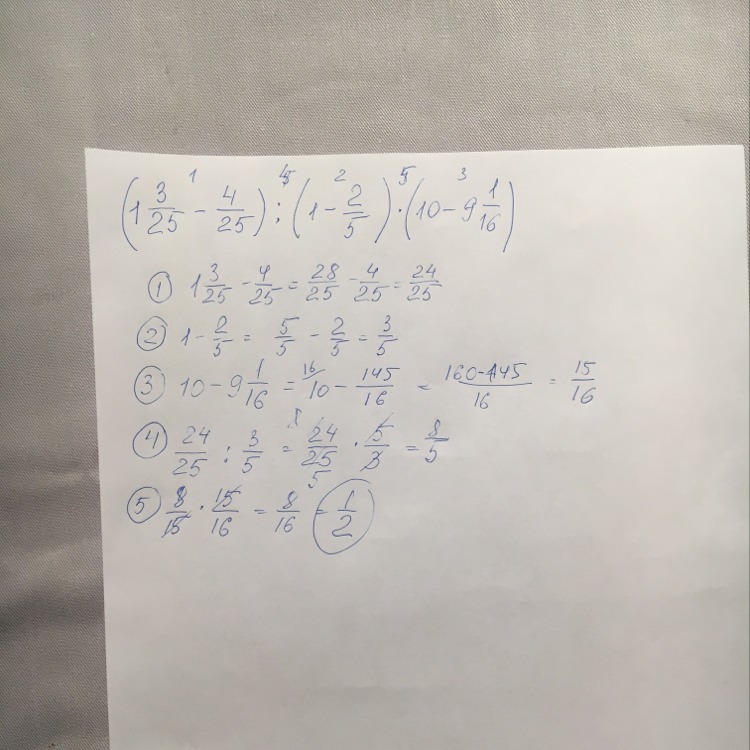 (1 3/25 - 4/25) : (1 - 2/5) · (10 - 9 1/16)
① 1 3/25 - 4/25 = 28/25 - 4/25 = 24/25
② 1 - 2/5 = 5/5 - 2/5 = 3/5
③ 10 - 9 1/16 = 16/10 - 145/16 = 160-145/16 = 15/16
④ 24/25 : 3/5 = 24/25 · 5/3 = 8/5
⑤ 8/15 · 15/16 = 8/16 = 1/2